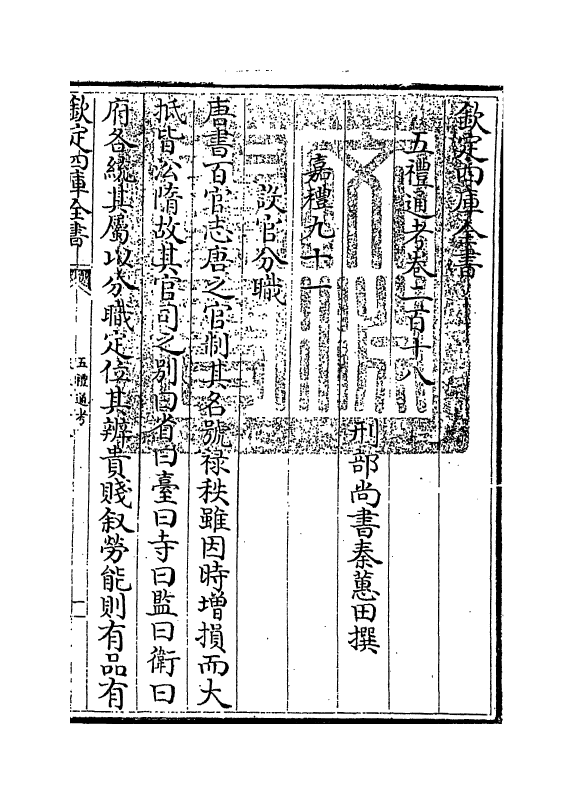 欽定四庫全書
五禮通考卷二百十八
刑部尚書秦蕙田撰
嘉禮九十一
設官分職
唐書百官志唐之官制其名號禄秩雖因時增損而大
抵皆沿隋故其官司之别曰省曰臺曰寺曰監曰衛曰
府各統其屬以分職定位其辨貴賤叙勞能則有品有
欽定四庫全書
五禮通考
一